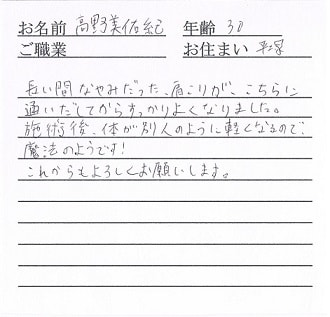 お名前 高野美佑紀 年齢 30
ご職業 お住まい 平塚
長い間なやみだった、肩こりが、こちらに
通いだしてからすっかりよくなりました。
施術後、体が別人のように軽くなるので、
魔法のようです!
これからもよろしくお願いします。